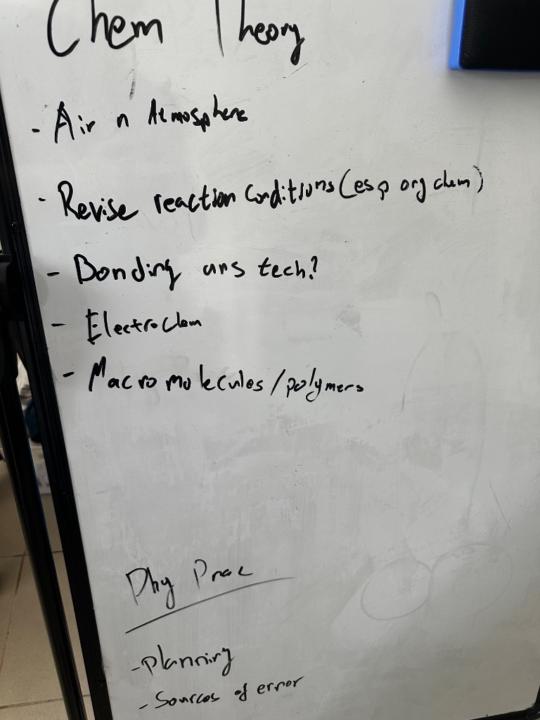 Chem Theory
- Air n Atmosphere
- Revise reaction conditions (esp org chem)
- Bonding ans tech?
- Electrochem
- Macromolecules/polymers
Phy Prac
- planning
- Sources of error